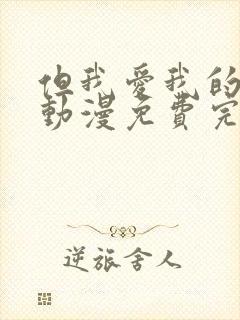 但我愛我的
動漫免費完
逆旅舍人